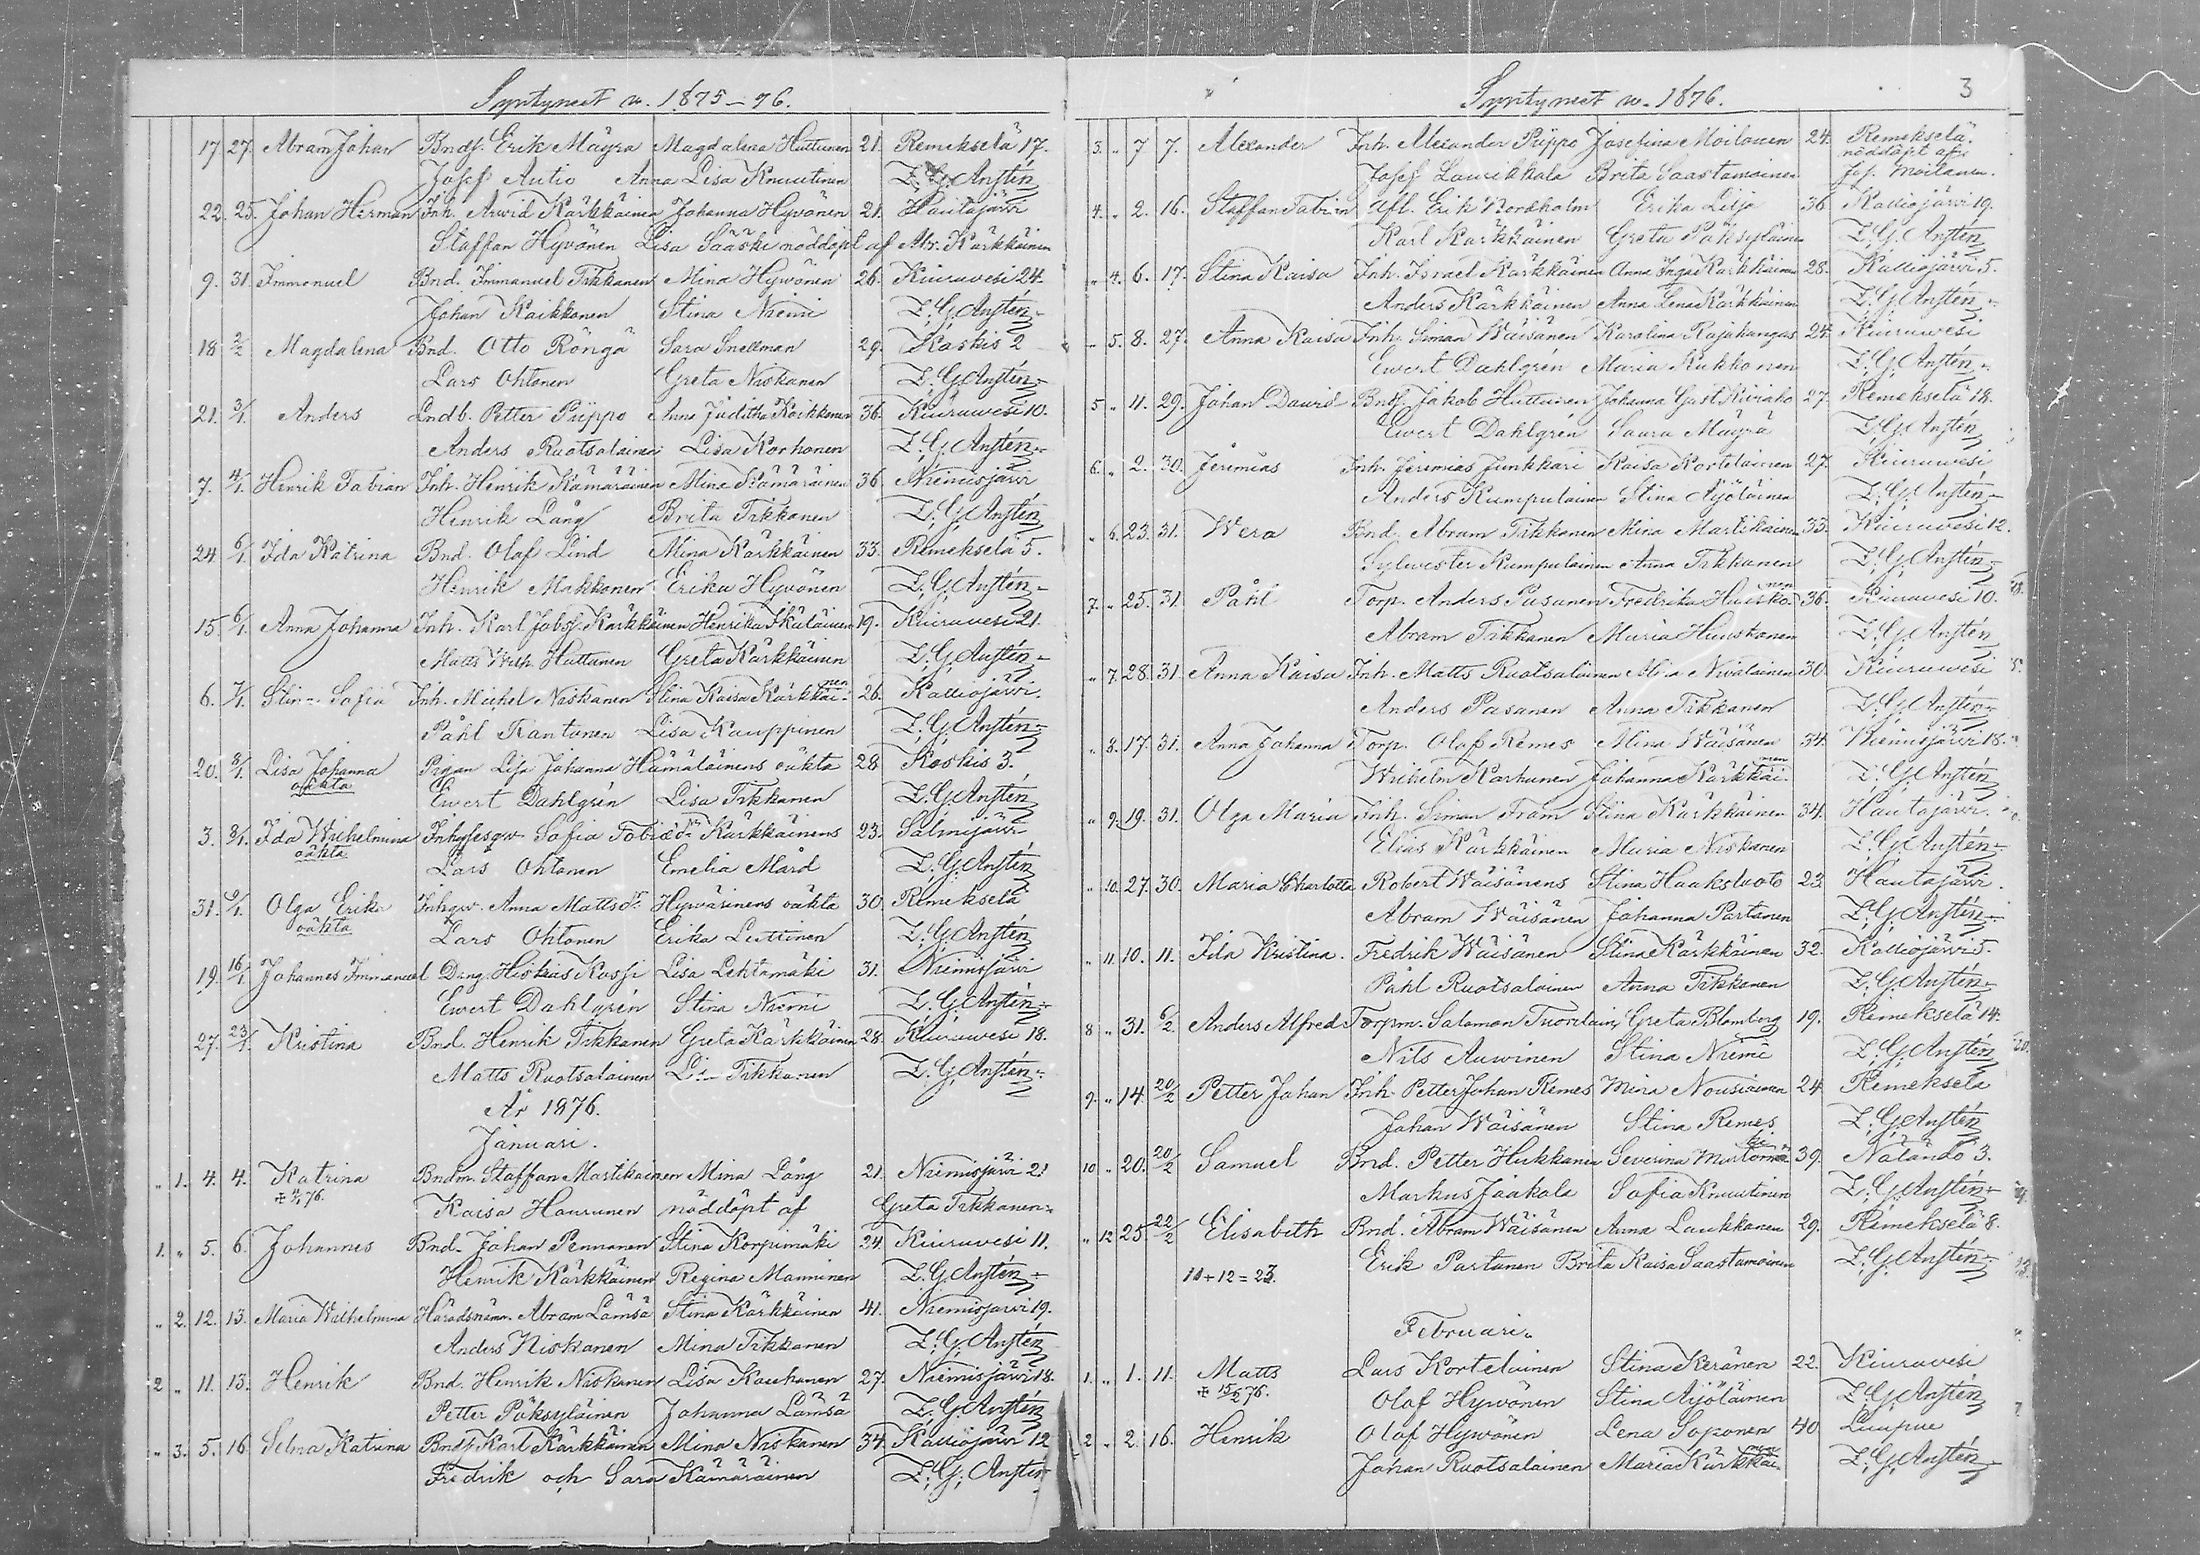 Syntyneet w. 1875-76.
17. 27. Abram Johan Bndf. Erik Mäyrä Magdalena Huttunen 21. Remekselä 17.
Josef Autio Anna Lisa Knuutinen L. G. Anstén
22. 25. Johan Herman Inh. Arvid Kärkkäinen Johanna Hyvönen 21. Hautajärvi
Staffan Hyvönen Lisa Sääski nöddöpt af Ar. Kärkkäinen
9. 31. Immanuel Bnd. Immanuel Tikkanen Mina Hyvönen 26. Kiuruvesi 24.
Johan Kaikkonen Stina Niemi L. G. Anstén
18 2/2 Magdalena Bnd. Otto Röngä Sara Snellman 29. Koskis 2
Lars Ohtonen Greta Niskanen L. G. Anstén
21. 3/1. Anders Lndb. Petter Piippo Anna Juditha Koikkonen 36. Kiuruwesi 10.
Anders Ruotsalainen Lisa Korhonen L. G. Anstén
7. 4/1. Henrik Fabian Inh. Henrik Kämäräinen Mina Kämäräinen 36 Niemisjärvi
Henrik Lång Brita Tikkanen L. G. Anstén
24 6/1. Ida Katrina Bnd. Olof Lind Mina Kärkkäinen 33. Remekselä 5.
Henrik Makkonen Erika Hyvönen L. G. Anstén
15. 6/1. Anna Johanna Inh. Karl Jobsf. Kärkkäinen Henrika Ikäläinen 19. Kiuruvesi 21.
Matts Wilh. Huttunen Greta Kärkkäinen L. G. Anstén
6. 7/1. Stina Sofia Inh. Michel Niskanen Stina Kaisa Kärkkäinen 26. Kalliojärvi.
Påhl Kantonen Lisa Kauppinen L. G. Anstén
20. 8/1. Lisa Johanna oäkta Pigan Lisa Johanna Hämäläinens oäkta 28 Koskis 3.
Ewert Dahlgrén Lisa Tikkanen L. G. Anstén
3. 8/1. Ida Wilhelmina oäkta Inhysesqv. Sofia Tobiædr Kärkkäinens 23. Salmejärvi
Lars Ohtonen Emelia Mård L. G. Anstén
31. 9/1. Olga Erika oäkta Inhqv. Anna Mattsdr Hyvärinens oäkta 30. Remekselä
Lars Ohtonen Erika Luttinen L. G. Anstén
19. 16/1. Johannes Immanuel Dräng. Hiskias Kossi Lisa Lehtomäki 31. Niemisjärvi
Ewert Dahlgrén Stina Niemi L. G. Anstén
27. 23/1. Kristina Bnd. Henrik Tikkanen Greta Kärkkäinen 28. Kiuruvesi 18.
Matts Ruotsalainen Tikkanen L. G. Anstén
År 1876.
Januari.
" 1. 4. 4. Katrina Bndm. Staffan Martikainen Mina Lång 21. Niemisjärvi 21
76. Kaisa Haurunen nöddöpt af Greta Tikkanen
1. " 5. 6. Johannes Bnd. Johan Pennanen Stina Korpimäki 24. Kiuruvesi 11.
Henrik Kärkkäinen Regina Manninen L. G. Anstén
" 2. 12. 13. Maria Wilhelmina Häradsnämn. Abram Lämsä Stina Kärkkäinen 41. Niemisjärvi 19.
Anders Niskanen Mina Tikkanen L. G. Anstén
2 " 11. 13. Henrik Bnd. Henrik Niskanen Lisa Kauhanen 27. Niemisjärvi 18.
Petter Päksyläinen Johanna Lämsä L. G. Anstén
" 3. 5. 16. Selma Katrina Bndf. Karl Kärkkäinen Mina Niskanen 34. Kalliojärvi 12
Fredrik och Sara Kämäräinen L. G. Anstén
Syntyneet w. 1876.
3
3. " 7 7. Alexander Inh. Alexander Piippo Josefina Moilanen 24. Remekselä.
Josef Laurikkala Brita Saastamoinen nöddöpt af Jos. Moilanen.
4. " 2. 16. Staffan Fabian Afl. Erik Nordholm Erika Lilja 36 Kalliojärvi 19.
Karl Kärkkäinen Greta Päksyläinen L. G. Anstén
" 4. 6. 17. Stina Kaisa Inh. Israel Kärkkäinen Anna Inga Kärkkäinen 28. Kalliojärvi 5.
Anders Kärkkäinen Anna Lena Kärkkäinen L. G. Anstén
" 5. 8. 27. Anna Kaisa Inh. Simon Wäisänen Karolina Rajakangas 24. Kiuruwesi
Ewert Dahlgrén Maria Kukkonen L. G. Anstén
5 " 11. 29. Johan David Bndf. Jakob Huttunen Johanna Gust. Kiviaho 27. Remekselä 18.
Ewert Dahlgrén Saara Mäyrä L. G. Anstén
6. " 2. 30. Jeremias Inh. Jeremias Junkkari Kaisa Kortelainen 27. Kiuruvesi
Anders Kumpulainen Stina Äyöläinen L. G. Anstén
" 6. 23. 31. Wera Bnd. Abram Tikkanen Mina Martikainen 33. Kiuruvesi 12.
Sylvester Kumpulainen Anna Tikkanen L. G. Anstén
7. " 25. 31. Påhl Torp. Anders Pasanen Fredrika Huiskonen 36. Kiuruvesi 10.
Abram Tikkanen Maria Huuskonen L. G. Anstén
" 7. 28. 31. Anna Kaisa Inh. Matts Ruotsalainen Mina Nivalainen 30. Kiuruvesi
Anders Pasanen Anna Tikkanen L. G. Anstén
" 8. 17. 31. Anna Johanna Torp. Olof Remes Mina Wäisänen 34. Niemisjärvi 18.
Wilhelm Karhunen Johanna Kärkkäinen L. G. Anstén
" 9. 19. 31. Olga Maria Inh. Simon Fram Stina Kärkkäinen 34. Hautajärvi.
Elias Kärkkäinen Maria Niskanen L. G. Anstén
" 10. 27. 30. Maria Charlotta Robert Wäisänens Stina Haaksluoto 23. Hautajärvi.
Abram Wäisänen Johanna Partanen L. G. Anstén
" 11. 10. 11. Ida Kristina. Fredrik Wäisänen Stina Kärkkäinen 32. Kalliojärvi 5.
Påhl Ruotsalainen Anna Tikkanen L. G. Anstén
8 " 31. 6/2 Anders Alfred Torpm. Salomon Tuorilainen Greta Blomberg 19. Remekselä 14.
Nils Auvinen Stina Niemi L. G. Anstén
9. " 14. 20/2 Petter Johan Inh. Petter Johan Remes Mina Nousiainen 24. Remekselä
Johan Wäisänen Stina Remes L. G. Anstén
10 " 20. 20/2 Samuel Bnd. Petter Hukkanen Severina 39. Näländö 3.
Markus Jaakola Sofia Knuutinen L. G. Anstén
" 12 25 22/2 Elisabeth Bnd. Abram Wäisänen Anna Laukkanen 29. Remekselä 8.
11+12=23. Erik Partanen Brita Kaisa Saastamoinen L. G. Anstén
Februari.
1. " 1. 11. Matts Lars Kortelainen Stina Keränen 22. Kiuruvesi
15/6 76. Olof Hyvönen Stina Äyöläinen L. G. Anstén
2 " 2. 16. Henrik Olof Hyvönen Lena Soponen 40. Luupue
Johan Ruotsalainen Maria Kärkkäinen L. G. Anstén